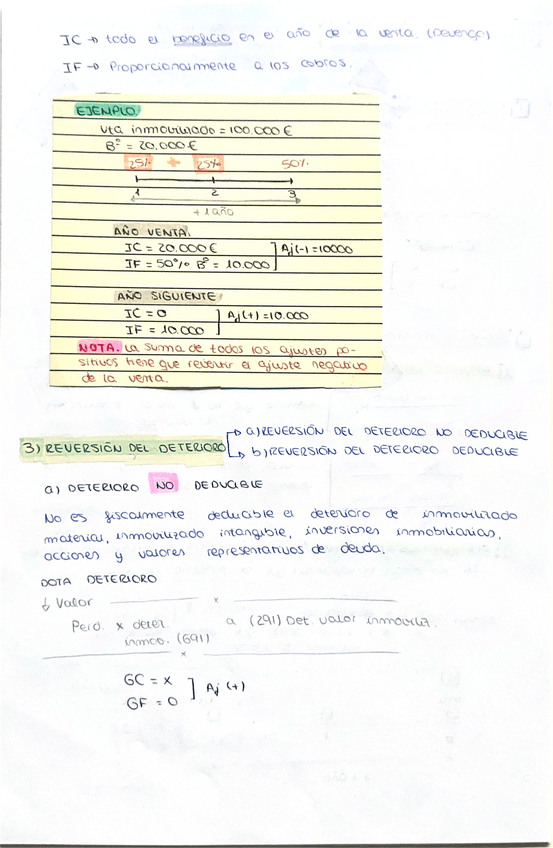 IC → todo el beneficio en el año de la venta. (Devengo)
IF → Proporcionalmente a los cobros.
EJEMPLO
Vta inmovilizado = 100.000 €
Bº = 20.000 €
25% + 25% 50%
1 2 3
+ 1 año
AÑO VENTA.
IC = 20.000 € ] Aj (-) = 10000
IF = 50% Bº = 10.000
AÑO SIGUIENTE
IC = 0 ] Aj (+) = 10.000
IF = 10.000
NOTA. La suma de todos los ajustes po-
sitivos tiene que revertir el ajuste negativo
de la venta.
3) REVERSIÓN DEL DETERIORO
a) REVERSIÓN DEL DETERIORO NO DEDUCIBLE
b) REVERSIÓN DEL DETERIORO DEDUCIBLE
a) DETERIORO NO DEDUCIBLE
No es fiscalmente deducible el deterioro de inmovilizado
material, inmovilizado intangible, inversiones inmobiliarias,
acciones y valores representativos de deuda.
DOTA DETERIORO
↓ Valor x
Perd. x deter. a (291) Det. valor inmoviliz.
inmov. (691)
x
GC = x ] Aj (+)
GF = 0